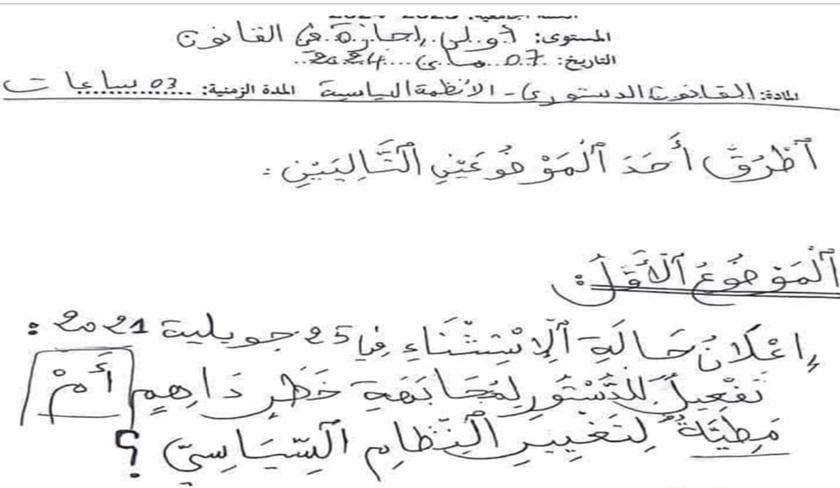 المستوى: أولى إجازة في القانون
التاريخ: 07 ماي 2024
المادة: القانون الدستوري - الأنظمة السياسية المدة الزمنية: 03 ساعات
أُطْرُقْ أَحَدَ ٱلْمَوْضُوعَيْنِ ٱلتَّالِيَيْنِ :
ٱلْمَوْضُوعُ ٱلْأَوَّلُ :
إِعْلَانُ حَالَةِ ٱلْإِسْتِثْنَاءِ فِي 25 جويلية 2021 :
تَفْعِيلٌ لِلدُّسْتُورِ لِمُجَابَهَةِ خَطَرٍ دَاهِمٍ أَمْ
مَطِيَّةٌ لِتَغْيِيرِ ٱلنِّظَامِ ٱلسِّيَاسِيِّ ؟